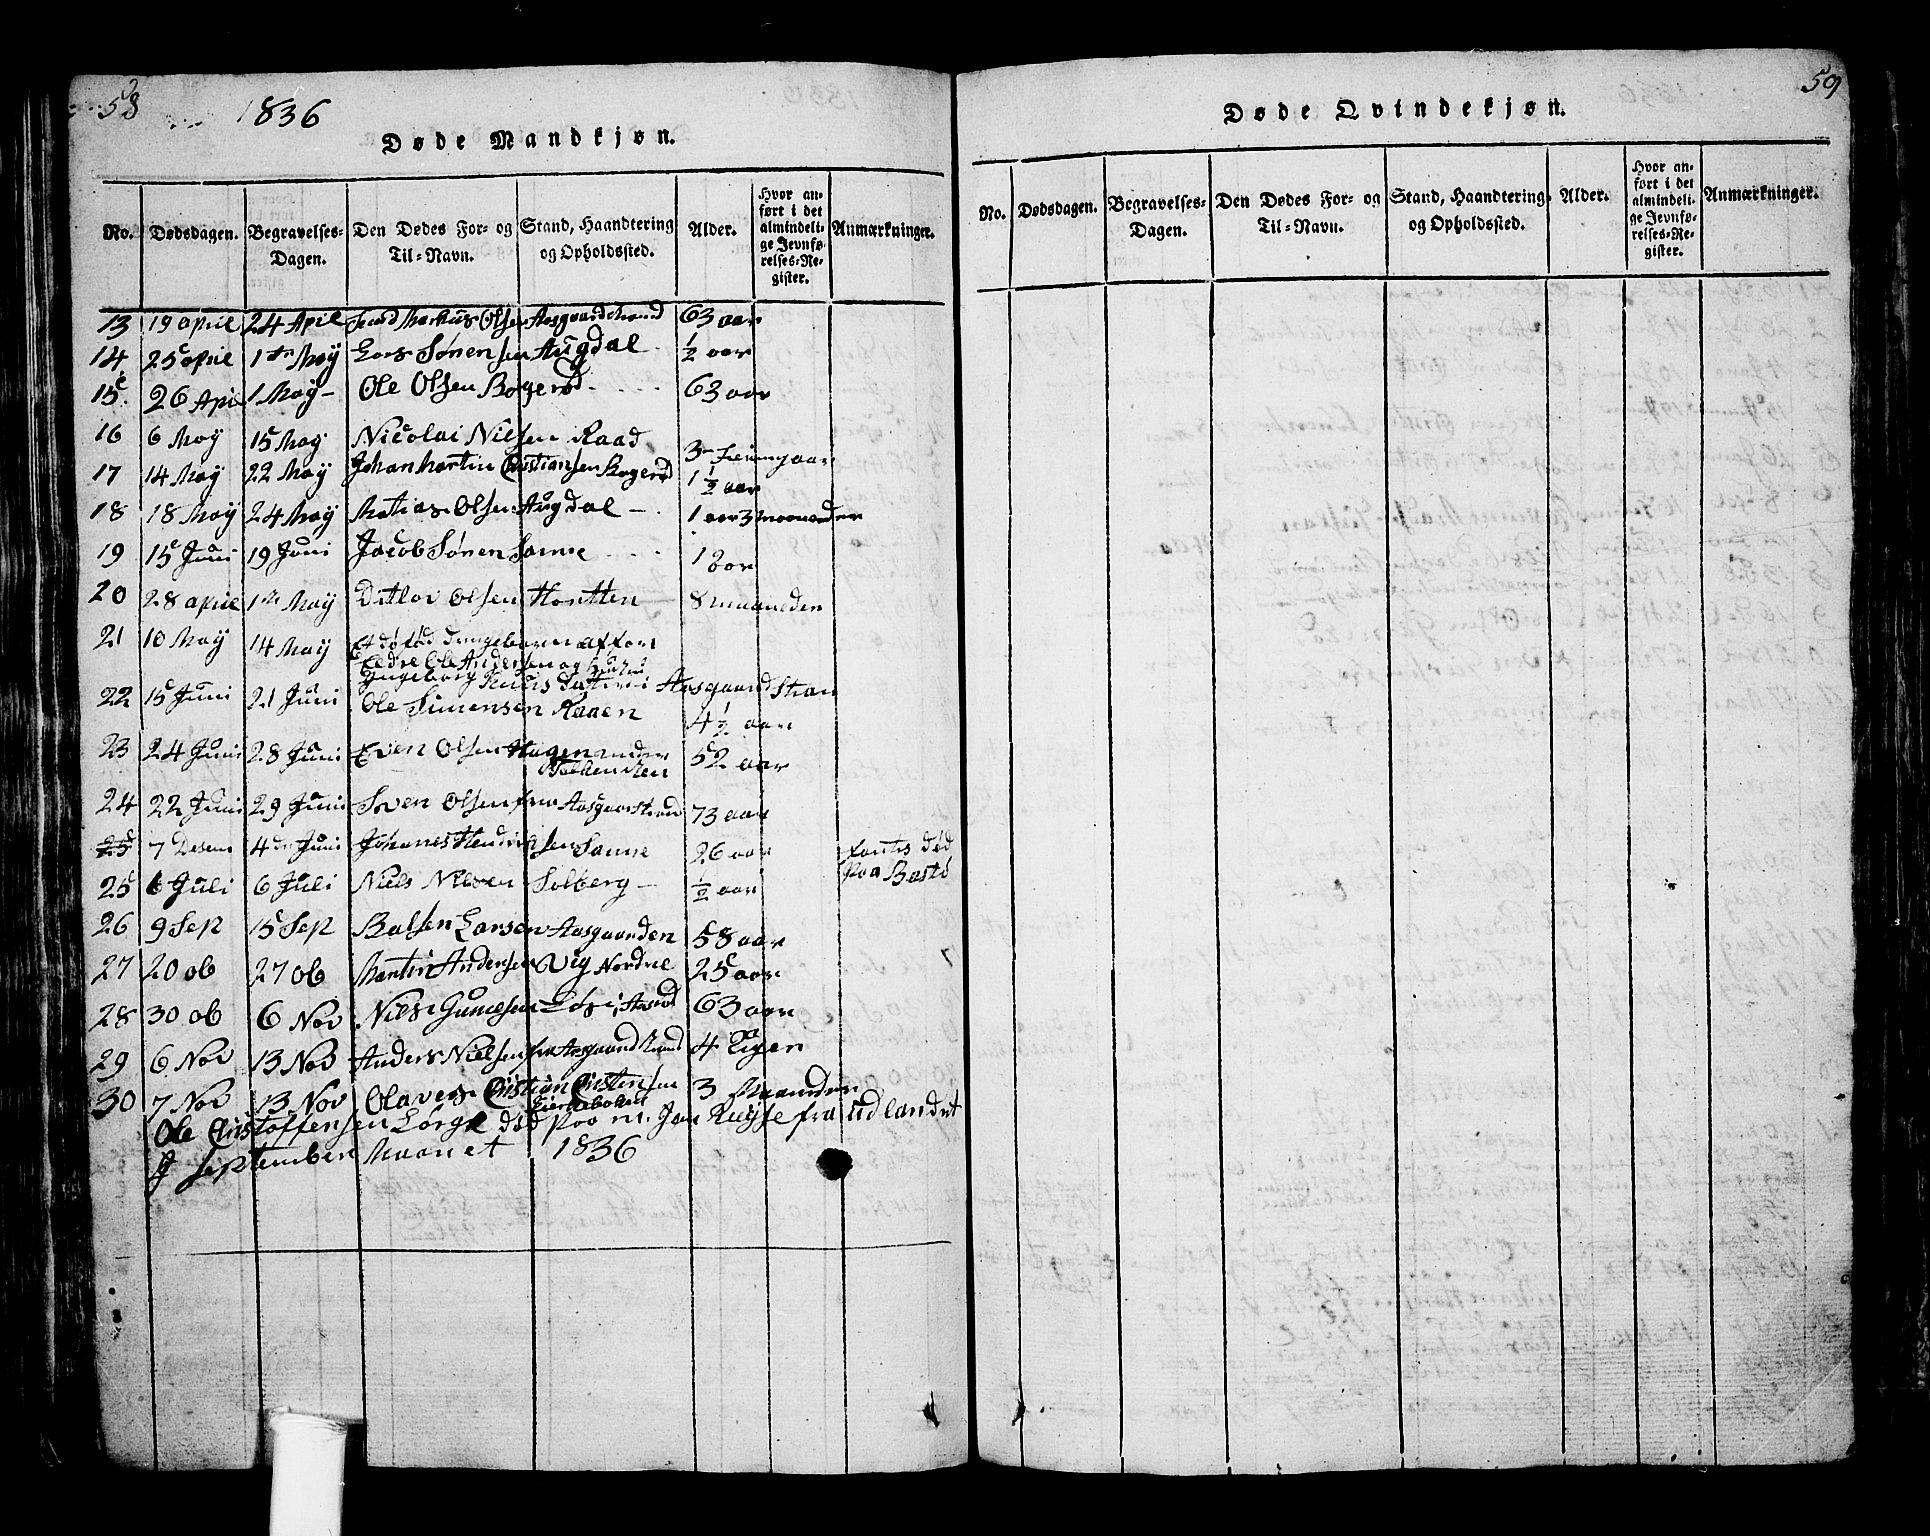 58
1836
Døde Mandkjøn.
No. Dødsdagen. Begravelses-Dagen. Den Dødes For- og Til-Navn. Stand, Haandtering og Opholdssted. Alder. Hvor anført i det almindelige Jevnførelses-Register. Anmærkninger.
13 19 april 24 April Markus Olsen Aasgaardstrand 63 aar
14 25 april 1ste Maÿ Lars Sørensen Augdal ½ aar
15 26 Apr 1 Maÿ Ole Olsen Bogerød 63 aar
16 6 Maÿ 15 May Nicolai Nielsen Raad
17 14 Maÿ 22 Maÿ Johan Martin Cristiansen Bogerød 1½ aar
18 18 Maÿ 24 Maÿ Matias Olsen Augdal 1 aar 3 maaneder
19 15 Juni 19 Juni Jacob Sønen Sanne 1 aar
20 28 april 1 Maÿ Ditlov Olsen Hortten 8 maaneder
21 10 Maÿ 14 Maÿ Et døfød drengebarn af for
Eldre Ole Andersen og
Ingeborg Aasgaard Stran
22 15 Juni 21 Juni Ole Simensen Raaen 4½ aar
23 24 Juni 28 Juni Even Olsen Hagen under
Falkensten 52 aar
24 22 Juni 29 Juni Sven Olsen fra Aasgaarstrand 73 aar
25 7 Desem 4 de Juni Johanes Hendriksen Sanne 26 aar fantes død
Paa Bastø
25 6 Juli 6 Juli Niels Nielsen Solberg ½ aar
26 9 Sep 15 Sep Balsen Larsen Aasgaarden 58 aar
27 20 ob 27 ob Martin Andersen Vig Nordre 25 aar
28 30 ob 6 Nov Niels 63 aar
29 6 Nov 13 Nov Anders Nielsen fra Aasgaard strand 4 Uger
30 7 Nov 13 Nov Olaves Cristian Cristensen 3 Maaneder
Ole Cristoffensen Lørge død Paa fra udlandet
J September Maanet 1836
59
Døde Qvindekjøn.
No. Dødsdagen. Begravelses-Dagen. Den Dødes For- og Til-Navn. Stand, Haandtering og Opholdssted. Alder. Hvor anført i det almindelige Jevnførelses-Register. Anmærkninger.